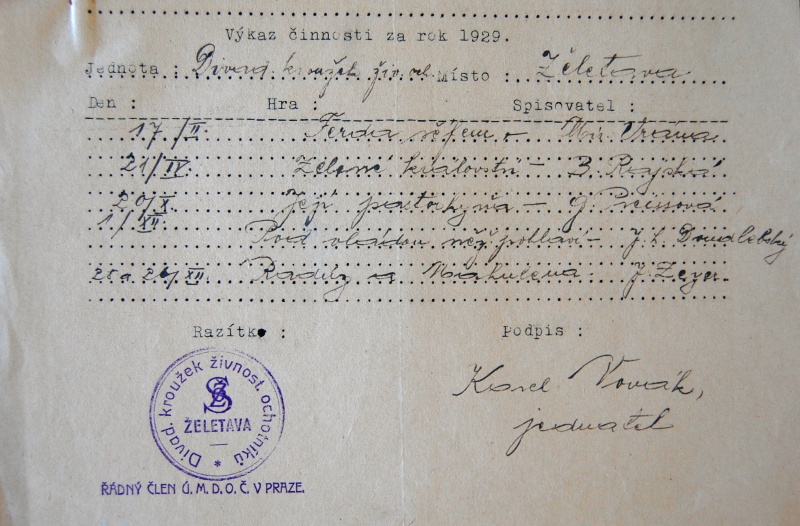 Výkaz činnosti za rok 1929.
Jednota : Divad. kroužek živ. och. Místo : Želetava
Den : Hra : Spisovatel :
17/II. Ferdia něfem - Vrána
21/IV. Zelené království - B. Rajská
20/X. Její pastorkyňa - G. Preissová
1/XII. Pod vládou něž. pohlaví - J. L. Doudlebský
25 a 26/XII. Radúz a Mahulena. J. Zeyer
Razítko : Podpis :
Divad. kroužek živnost. ochotníků
ŽELETAVA
Karel Novák,
jednatel
ŘÁDNÝ ČLEN Ú. M. D. O. Č. V PRAZE.